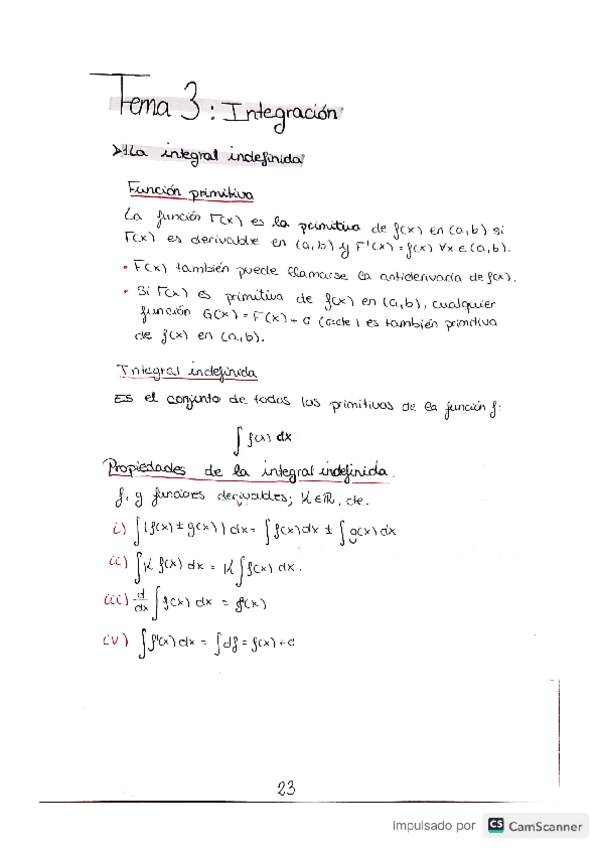 Tema 3: Integración
➤1. La integral indefinida
Función primitiva
La función F(x) es la primitiva de f(x) en (a,b) si
F(x) es derivable en (a,b) y F'(x) = f(x) ∀x ∈ (a,b).
• F(x) también puede llamarse la antiderivada de f(x).
• Si F(x) es primitiva de f(x) en (a,b), cualquier
función G(x) = F(x) + C (C=cte) es también primitiva
de f(x) en (a,b).
Integral indefinida
Es el conjunto de todas las primitivas de la función f:
∫ f(x) dx
Propiedades de la integral indefinida.
f, y funciones derivables; K ∈ ℝ, cte.
i) ∫(f(x) ± g(x)) dx = ∫ f(x) dx ± ∫ g(x) dx
ii) ∫K f(x) dx = K ∫ f(x) dx.
iii) d/dx ∫ f(x) dx = f(x)
iv) ∫ f'(x) dx = ∫ df = f(x) + C
23
Impulsado por CS CamScanner